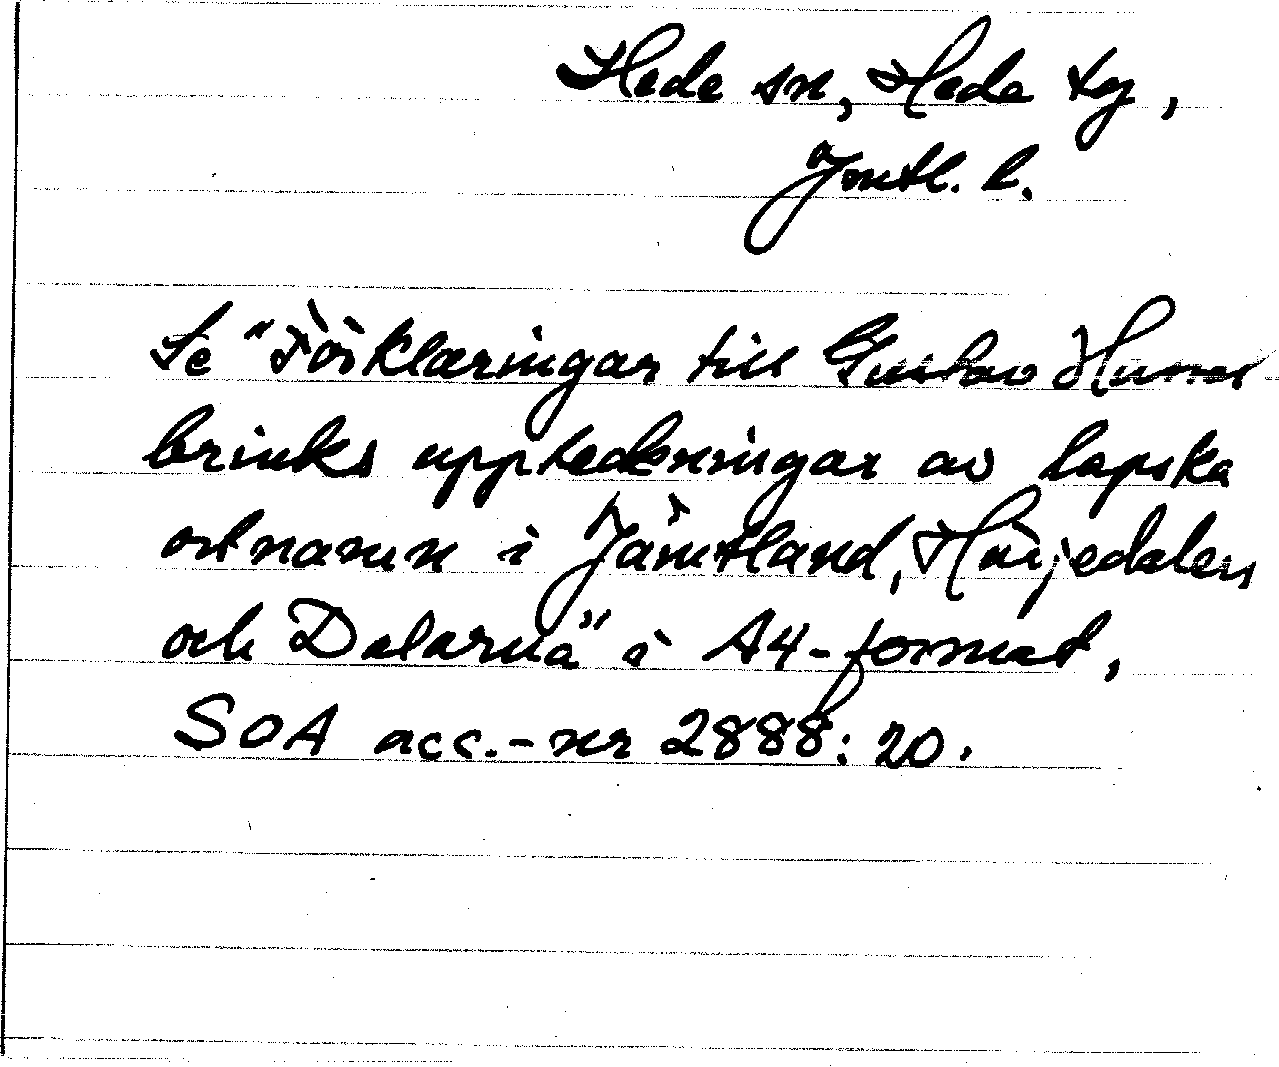 Hede sn, Hede tg,
Jmtl. l.
Se "Förklaringar till Gustav Hassel-
brinks uppteckningar av lapska
ortnamn i Jämtland, Härjedalen
och Dalarna" i A4-format,
SOA acc.-nr 2888:20.